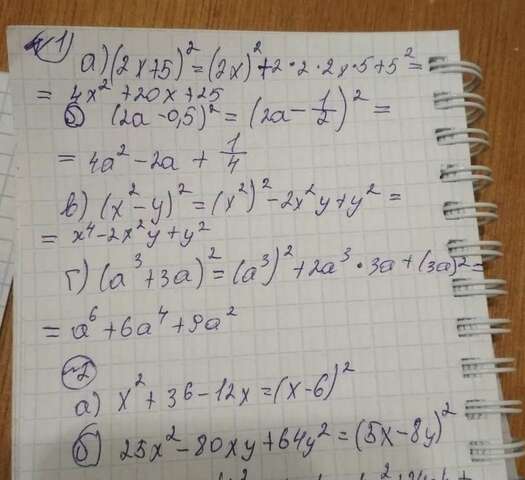 1)
а) (2x+5)² = (2x)² + 2 · 2 · 2x · 5 + 5² =
= 4x² + 20x + 25
б) (2a - 0,5)² = (2a - 1/2)² =
= 4a² - 2a + 1/4
в) (x² - y)² = (x²)² - 2x²y + y² =
= x⁴ - 2x²y + y²
г) (a³ + 3a)² = (a³)² + 2a³ · 3a + (3a)² =
= a⁶ + 6a⁴ + 9a²
2
а) x² + 36 - 12x = (x - 6)²
б) 25x² - 80xy + 64y² = (5x - 8y)²